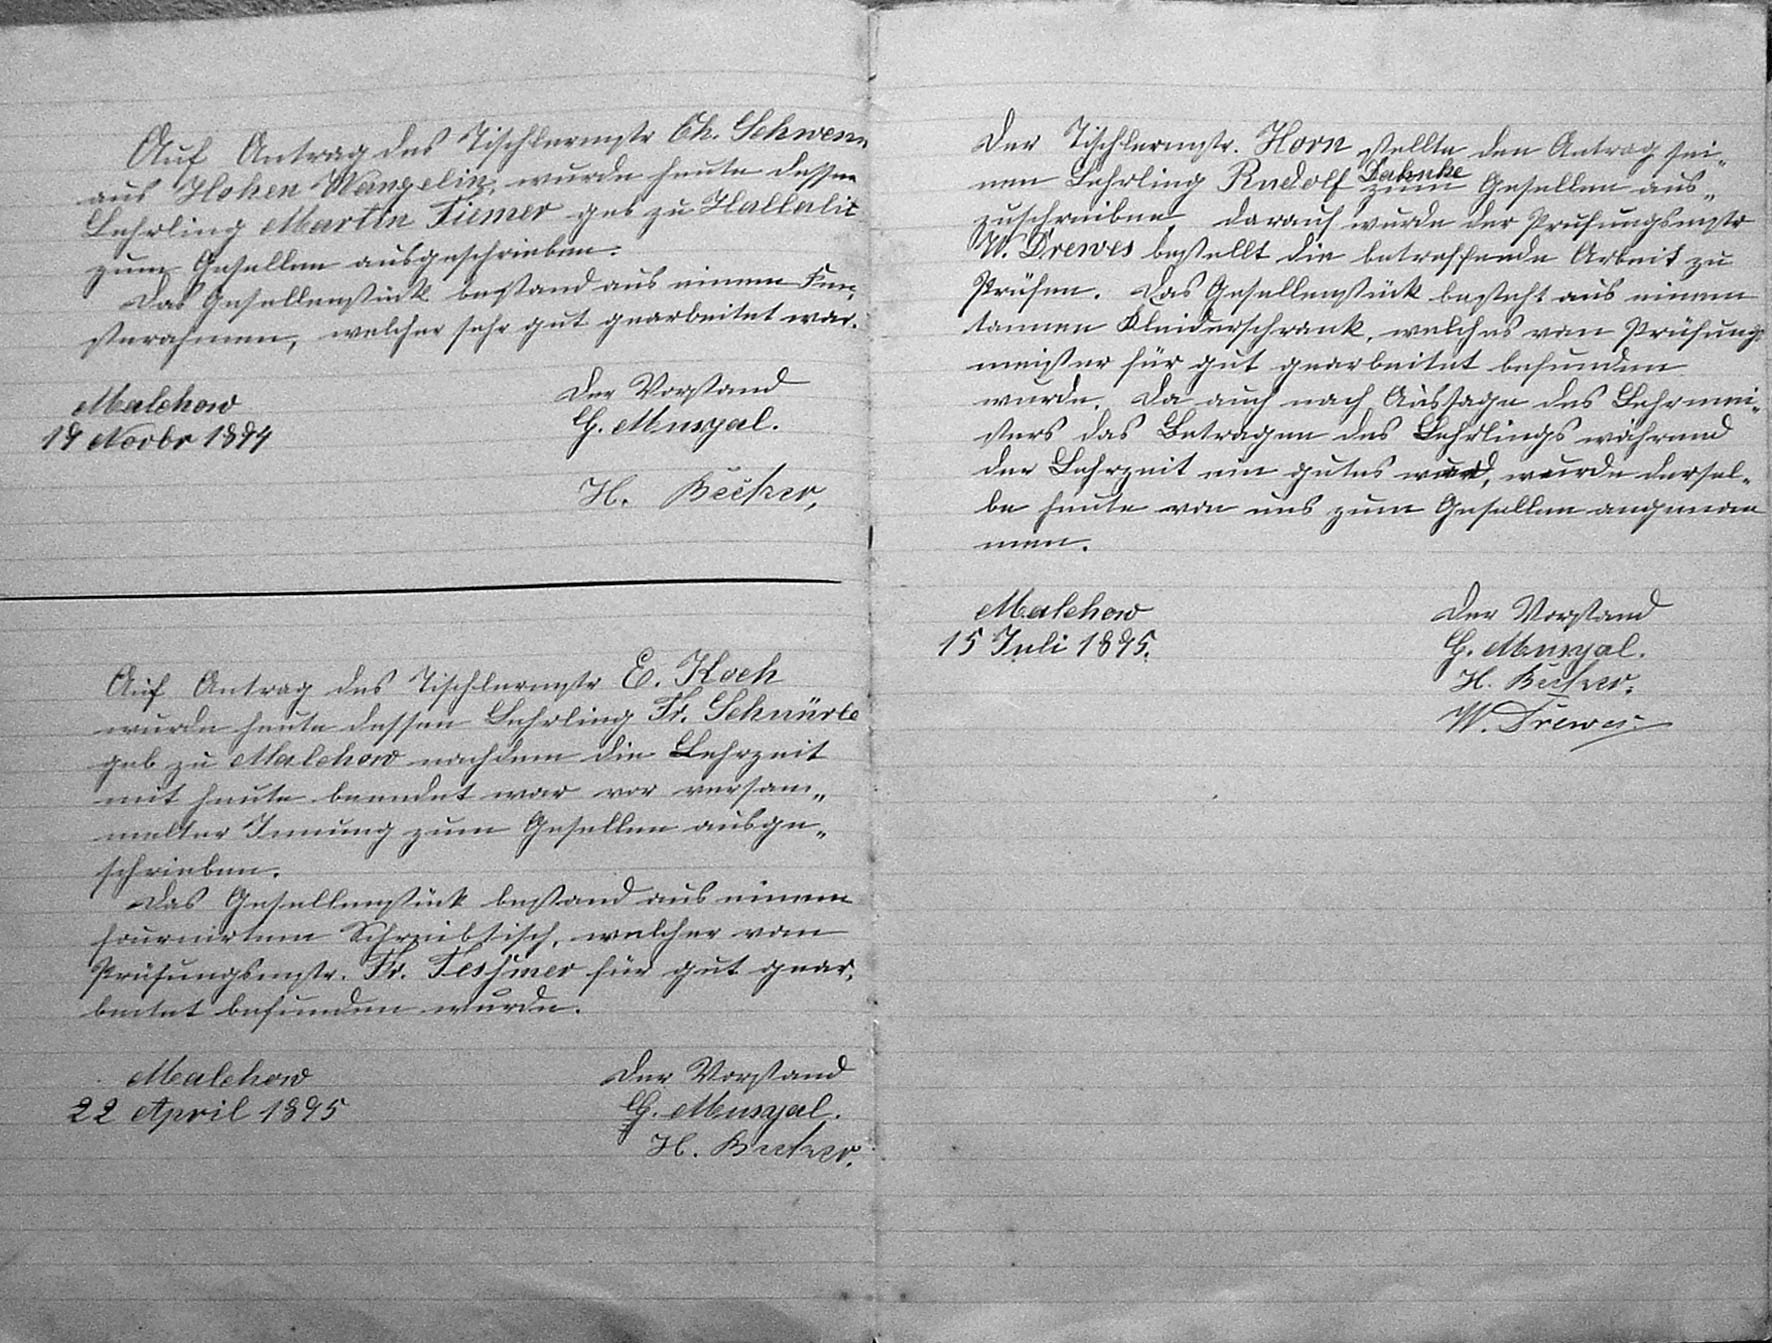 Auf Antrag des Tischlermstr Ch. Schwenn
aus Hohen Wangelin, wurde heute dessen
Lehrling Martin Tiemer geb zu Hallalit
zum Gesellen ausgeschrieben.
Das Gesellenstück bestand aus einem Fen,
sterrahmen, welcher sehr gut gearbeitet war.
Malchow
Der Vorstand
19 Novbr 1894
G. Musyal.
H. Becker,
Auf Antrag des Tischlermstr E. Koch
wurde heute dessen Lehrling Fr. Schnürle
geb zu Malchow nachdem die Lehrzeit
mit heute beendet war vor versam„
melter Innung zum Gesellen ausge„
schrieben.
Das Gesellenstück bestand aus einem
fournirtem Schreibtisch, welcher vom
Prüfungsmstr. Fr. Teßmer für gut gear,
beitet befunden wurde.
Malchow
Der Vorstand
22 April 1895
G. Musyal.
H. Becker.
Der Tischlermstr. Horn stellte den Antrag sei„
nen Lehrling Rudolf Dahnke zum Gesellen aus„
zuschreiben, darauf wurde der Prüfungsmstr
W. Drewes bestellt die betreffende Arbeit zu
Prüfen. Das Gesellenstück besteht aus einem
tannen Kleiderschrank, welches vom Prüfungs
meister für gut gearbeitet befunden
wurde. Da auch nach Aussage des Lehrmei„
sters das Betragen des Lehrlings während
der Lehrzeit ein gutes war, wurde dersel„
be heute von uns zum Gesellen angenom
men.
Malchow
Der Vorstand
15 Juli 1895.
G. Musyal.
H. Becker.
W. Drewes.